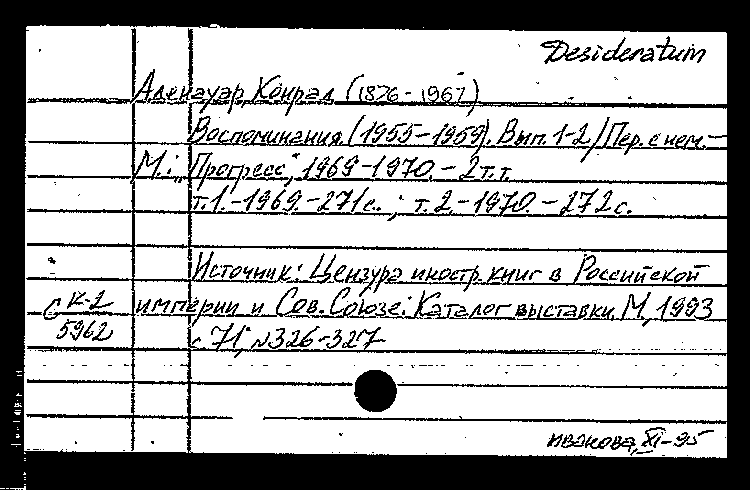 Desideratum
Аденауар, Конрад (1876-1967)
Воспоминания. (1955-1959). Вып. 1-2/Пер. с нем.-
М.: „Прогресс“, 1969-1970. - 2 т.т.
т.1.-1969.-271с. ; т.2.-1970.-272с.
Источник: Цензура иностр. книг в Российской
империи и Сов. Союзе: Каталог выставки. М, 1993
с 71, №326-327
С К-1
5962
Иванова, XI-95